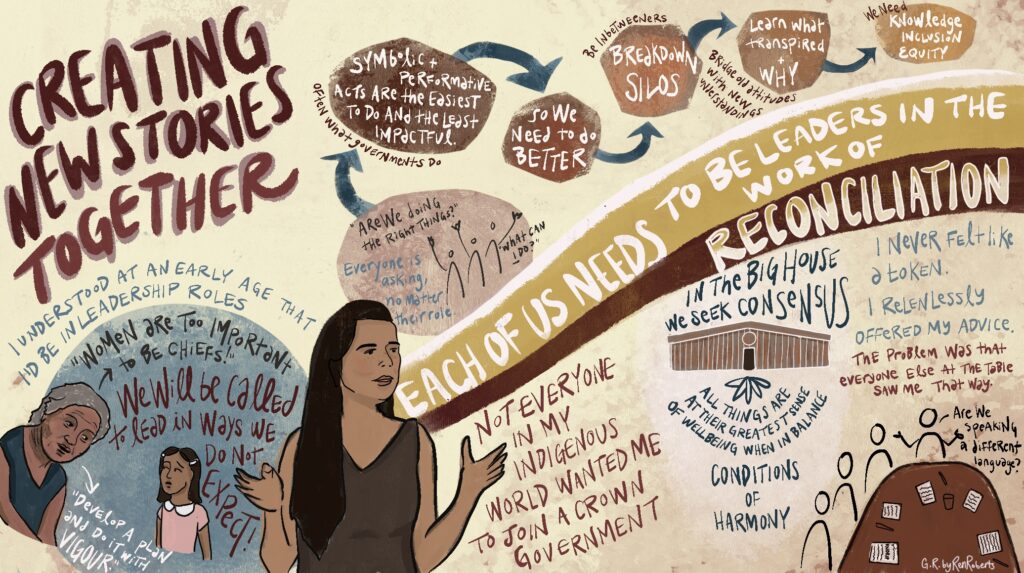 CREATING
NEW STORIES
TOGETHER
SYMBOLIC +
PERFORMATIVE
ACTS ARE THE EASIEST
TO DO AND THE LEAST
IMPACTFUL.
OFTEN WHAT GOVERNMENTS DO
SO WE
NEED TO DO
BETTER
BE INBETWEENERS
BREAKDOWN
SILOS
BRIDGE OLD ATTITUDES
WITH NEW
UNDERSTANDINGS
LEARN WHAT
TRANSPIRED
+
WHY
WE NEED
KNOWLEDGE
INCLUSION
EQUITY
"ARE WE DOING
THE RIGHT THINGS?"
Everyone is
asking,
no matter
their role
"WHAT CAN
I DO?"
EACH OF US NEEDS TO BE LEADERS IN THE
WORK OF
RECONCILIATION
I UNDERSTOOD AT AN EARLY AGE THAT
I'D BE IN LEADERSHIP ROLES
"WOMEN ARE TOO IMPORTANT
TO BE CHIEFS!"
We Will be CAlled
to leAd in WAYS WE
DO NOT
EXPECT!
"DEVELOP A PLAN
AND DO IT WITH
VIGOUR"
NOT EVERYONE
IN MY
INDIGENOUS
WORLD WANTED ME
TO JOIN A CROWN
GOVERNMENT
IN THE BIG HOUSE
WE SEEK CONSENSUS
ALL THINGS ARE
AT THEIR GREATEST SENSE
OF WELLBEING WHEN IN BALANCE
CONDITIONS
OF
HARMONY
I NEVER FELT LIKE
A TOKEN.
I RELENLESSLY
OFFERED MY ADVICE.
THE PROBLEM WAS THAT
EVERYONE ELSE AT THE TABLE
SAW ME THAT WAY.
ARE WE
SPEAKING
A DIFFERENT
LANGUAGE?
G.R. by Ren Roberts